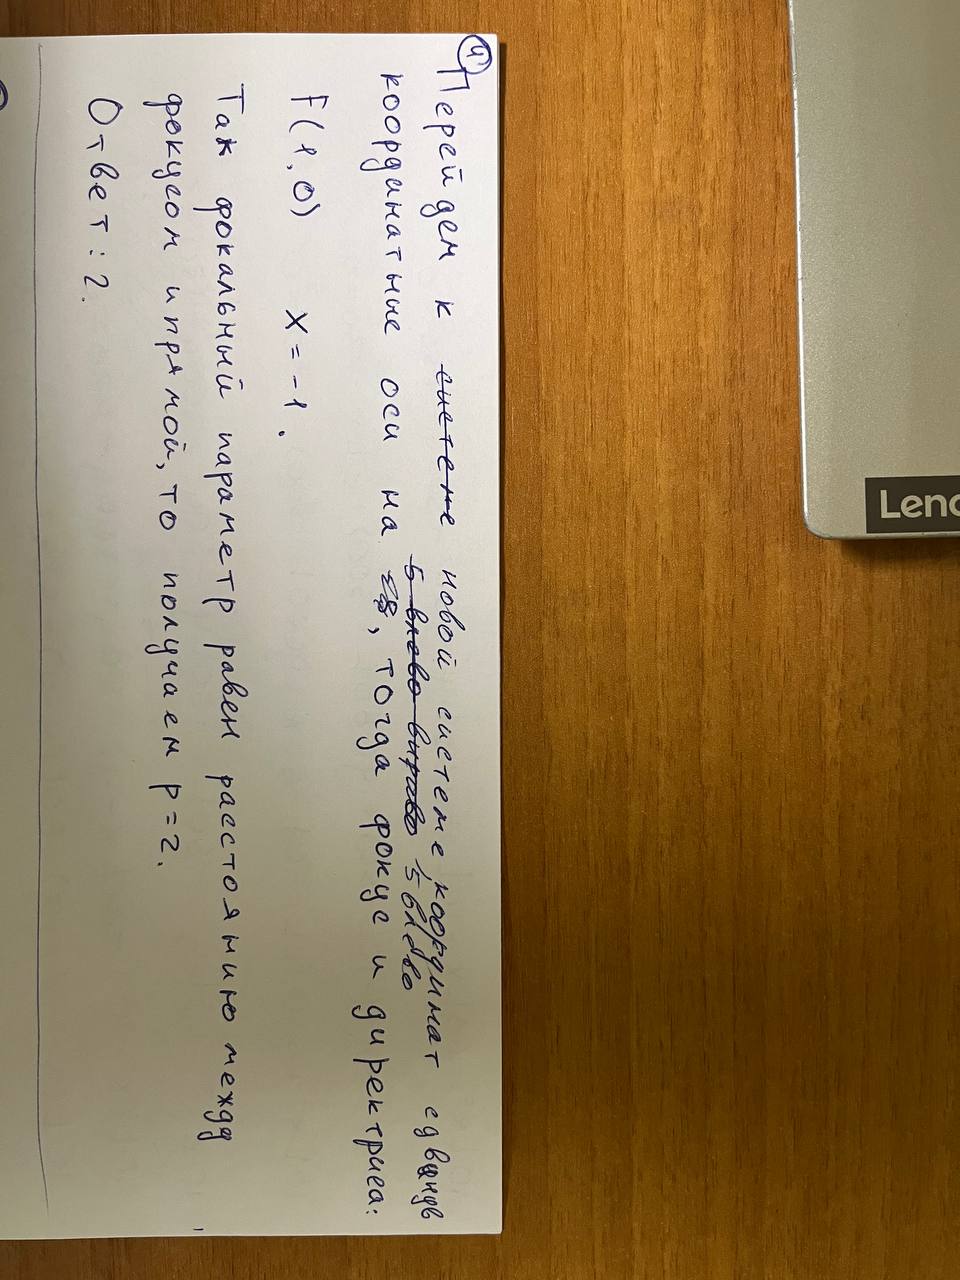 ④ Перейдем к системе новой системе координат сдвинув
5 влево вправо 5 влево
координатные оси на , тогда фокус и директриса:
F(1,0) x=-1.
Так фокальный параметр равен расстоянию между
фокусом и прямой, то получаем p=2.
Ответ: 2.
Leno